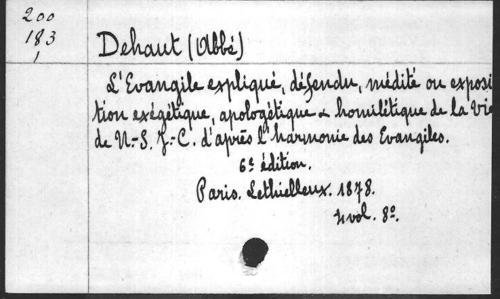 200
183
1
Dehaut (Abbé)
L'Evangile expliqué, défendu, médité ou exposi
tion exégétique, apologétique & homilétique de la Vie
de N.-S. J.-C. d'après l'harmonie des Evangiles.
6e édition.
Paris. Lethielleux. 1878.
4 vol. 8o.